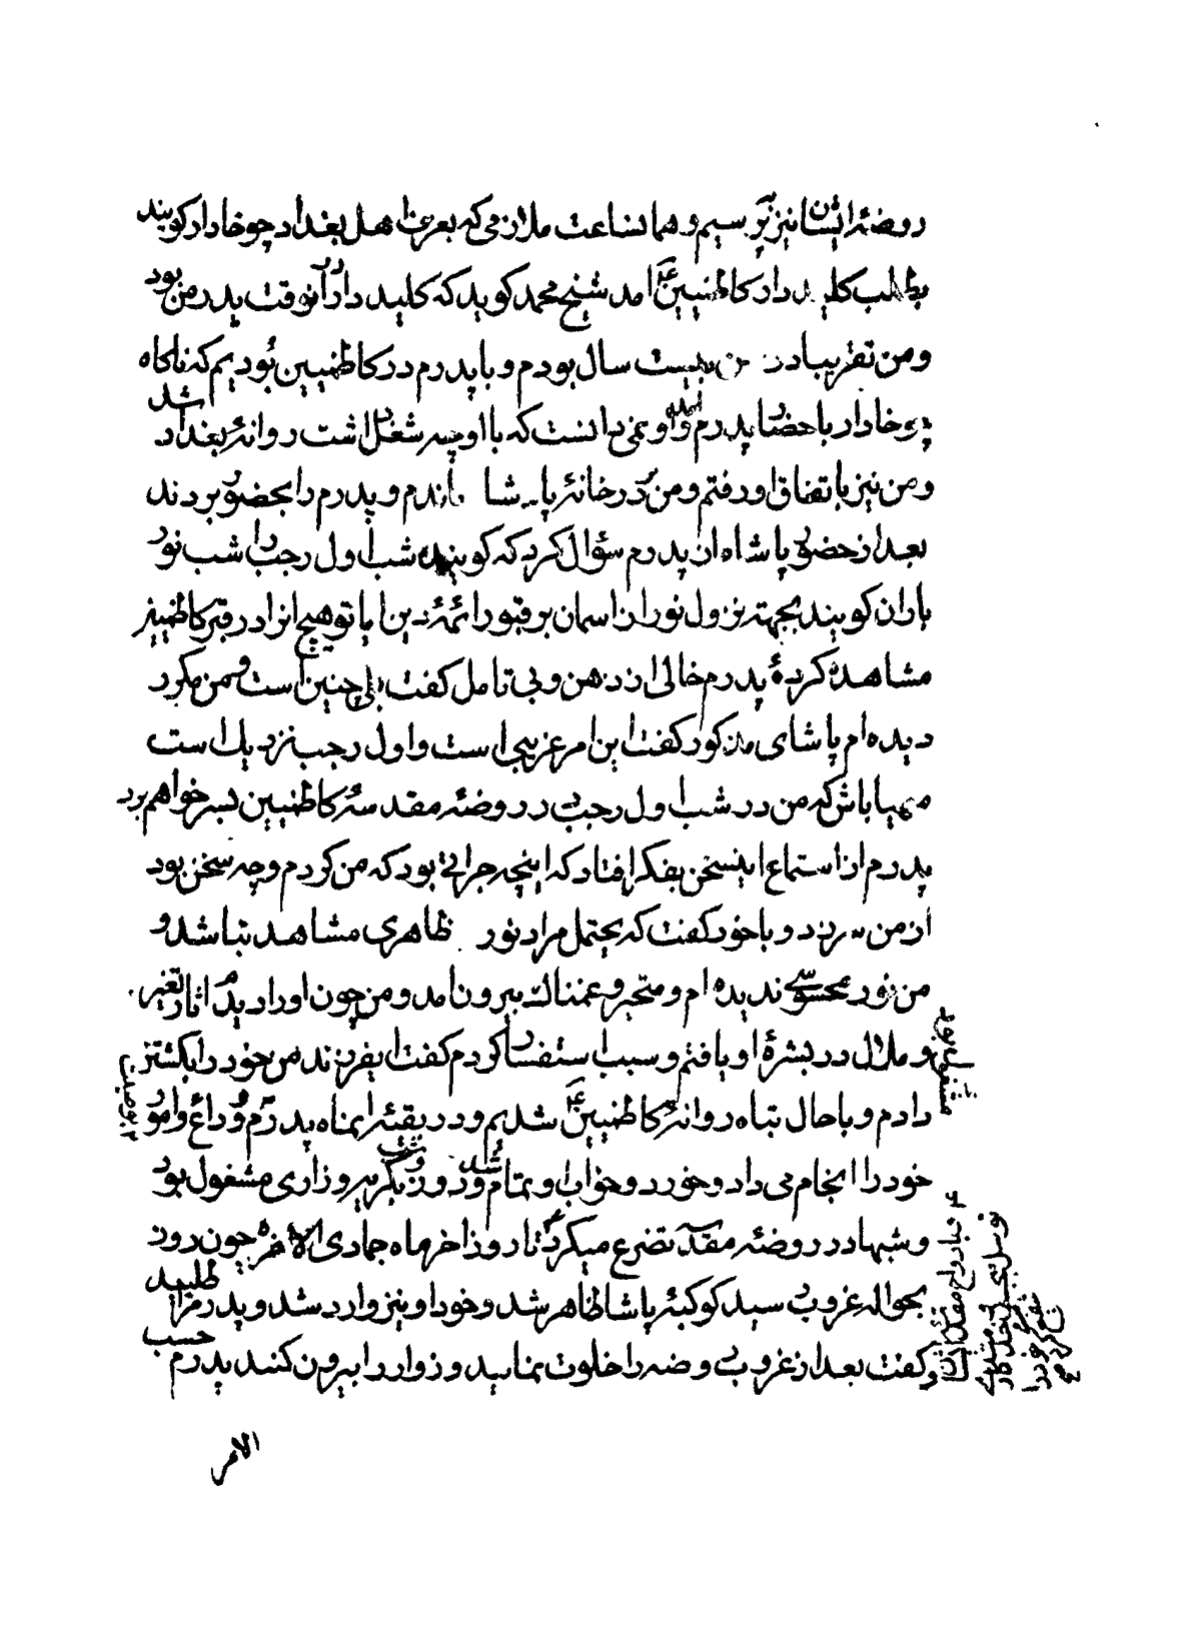 روضهٔ ایشان نیز پرسیم و همان ساعت ملازمی که بعرف اهل بغداد چوخادار کویند
بطلب کلید دار کاظمیین امد شیخ محمد کوید که کلید دار در آنوقت پدر من بود
و من تقریبا در سن بیست سال بودم و با پدرم در کاظمیین بودیم که ناکاه
چوخادار باحضار پدرم آمد و او نمی دانست که با او چه شغل داشت روانهٔ بغداد شد
و من نیز باتفاق او رفتم و من در در خانهٔ پاشا ماندم و پدرم را بحضور بردند
بعد از حضور پاشاه از پدرم سؤال کرد که کویند شب اول رجب را شب نور
باران کویند بجهته نزول نور از اسمان بر قبور ائمهٔ دین ایا تو هیچ انرا در قبر کاظمیین
مشاهده کردهٔ پدرم خالی از ذهن و بی تامل کفت بلی چنین است و من مکرر
دیده ام پاشای مذکور کفت این امر غریبی است و اول رجب نزدیک است
مهیا باش که من در شب اول رجب در روضهٔ مقدسهٔ کاظمیین بسر خواهم برد
پدرم از استماع اینسخن بفکر افتاد که این چه جراتی بود که من کردم و چه سخن بود
از من سر زد و با خود کفت که یحتمل مراد نور ظاهری مشاهد نباشد و
من نور محسوسی ندیده ام و متحیر و غمناک بیرون امد و من چون او را دیدم اثار تغیر
و ملال در بشرهٔ او یافتم و سبب استفسار کردم کفت ایفرزند من خود را بکشتن
دادم و با حال تباه روانهٔ کاظمیین شدیم و در بقیهٔ انماه پدرم وداع و امور
خود را انجام می داد و خورد و خواب او تمام شد و روز و شب بگریه و زاری مشغول بود
و شبها در روضهٔ مقدسه تضرع میکرد تا روز اخر ماه جمادی الاخره چون روز
بحوالی غروب رسید کوکبهٔ پاشا ظاهر شد و خود او نیز وارد شد و پدر مرا طلبید
و کفت بعد از غروب روضه را خلوت نمایید و زوار را بیرون کنند پدرم حسب
الامر